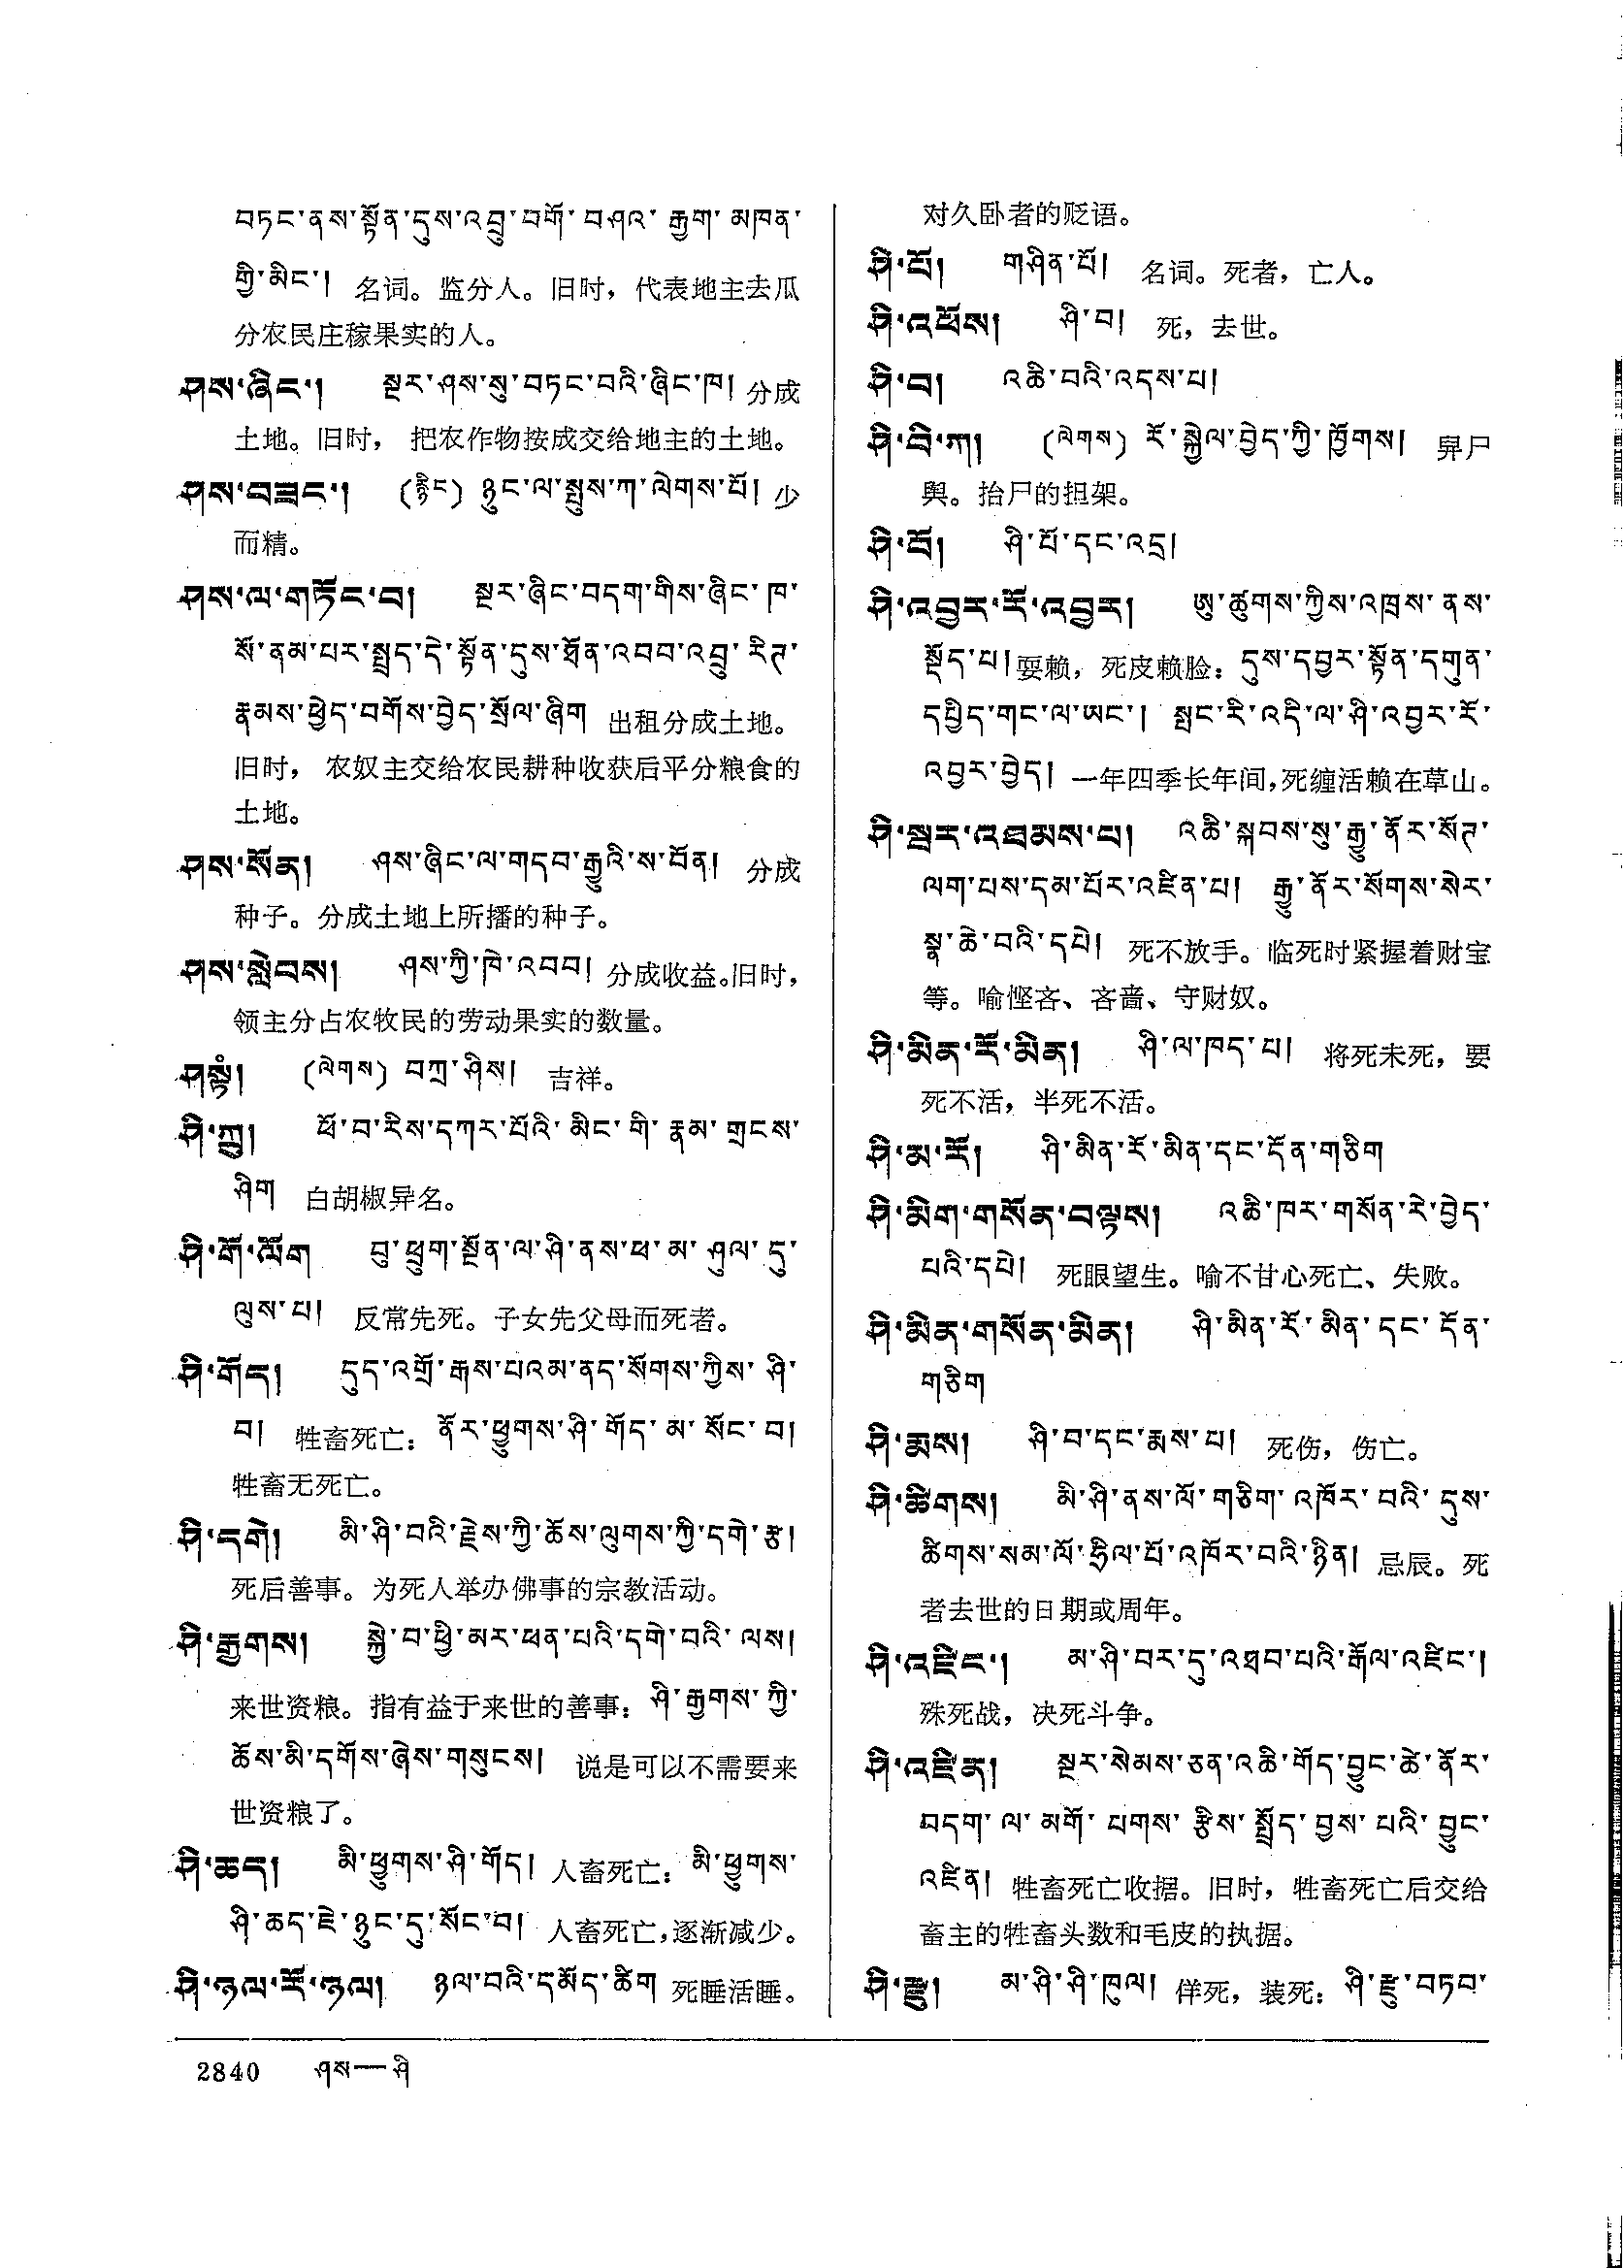 བཏང་ནས་སྟོན་དུས་འབྲུ་བགོ་བཤའ་རྒྱག་མཁན་
གྱི་མིང་། 名词。监分人。旧时，代表地主去瓜
分农民庄稼果实的人。
ཤས་ཞིང་། སྔར་ཤས་སུ་བཏང་བའི་ཞིང་ཁ། 分成
土地。旧时， 把农作物按成交给地主的土地。
ཤས་བཟང་། (རྙིང) ཉུང་ལ་སྤུས་ཀ་ལེགས་པོ། 少
而精。
ཤས་ལ་གཏོང་བ། སྔར་ཞིང་བདག་གིས་ཞིང་ཁ་
སོ་ནམ་པར་སྤྲད་དེ་སྟོན་དུས་ཐོན་འབབ་འབྲུ་རིཊ་
རྣམས་ཕྱེད་བགོས་བྱེད་སྲོལ་ཞིག 出租分成土地。
旧时， 农奴主交给农民耕种收获后平分粮食的
土地。
ཤས་སོན། ཤས་ཞིང་ལ་གདབ་རྒྱུའི་ས་བོན། 分成
种子。分成土地上所播的种子。
ཤས་སླེབས། ཤས་ཀྱི་ཁེ་འབབ། 分成收益。旧时，
领主分占农牧民的劳动果实的数量。
ཤསྟཾ། (ལེགས) བཀྲ་ཤིས། 吉祥。
ཤི་ཀྲུ། ཕོ་བ་རིས་དཀར་པོའི་མིང་གི་རྣམ་གྲངས་
ཤིག 白胡椒异名。
ཤི་གོ་ལོག བུ་ཕྲུག་སྔོན་ལ་ཤི་ནས་ཕ་མ་ཤུལ་དུ་
ལུས་པ། 反常先死。子女先父母而死者。
ཤི་གོད། དུད་འགྲོ་རྒས་པའམ་ནད་སོགས་ཀྱིས་ཤི་
བ། 牲畜死亡： ནོར་ཕྱུགས་ཤི་གོད་མ་སོང་བ།
牲畜无死亡。
ཤི་དགེ། མི་ཤི་བའི་རྗེས་ཀྱི་ཆོས་ལུགས་ཀྱི་དགེ་རྩ།
死后善事。为死人举办佛事的宗教活动。
ཤི་རྒྱགས། སྐྱེ་བ་ཕྱི་མར་ཕན་པའི་དགེ་བའི་ལས།
来世资粮。指有益于来世的善事： ཤི་རྒྱགས་ཀྱི་
ཆོས་མི་དགོས་ཞེས་གསུངས། 说是可以不需要来
世资粮了。
ཤི་ཆད། མི་ཕྱུགས་ཤི་གོད། 人畜死亡： མི་ཕྱུགས་
ཤི་ཆད་ཇེ་ཉུང་དུ་སོང་བ། 人畜死亡，逐渐减少。
ཤི་ཉལ་རོ་ཉལ། ཉལ་བའི་དམོད་ཚིག 死睡活睡。
对久卧者的贬语。
ཤི་པོ། གཤིན་པོ། 名词。死者，亡人。
ཤི་འཕོས། ཤི་བ། 死，去世。
ཤི་བ། འཆི་བའི་འདས་པ།
ཤི་བི་ཀ། (ལེགས) རོ་སྐྱེལ་བྱེད་ཀྱི་ཁྱོགས། 舁尸
舆。抬尸的担架。
ཤི་བོ། ཤི་པོ་དང་འདྲ།
ཤི་འབྱར་རོ་འབྱར། ཨུ་ཚུགས་ཀྱིས་འཁྲས་ནས་
སྡོད་པ། 耍赖，死皮赖脸： དུས་དབྱར་སྟོན་དགུན་
དཔྱིད་གང་ལ་ཡང་། སྤང་རི་འདི་ལ་ཤི་འབྱར་རོ་
འབྱར་བྱེད། 一年四季长年间，死缠活赖在草山。
ཤི་སྦར་འཐམས་པ། འཆི་སྐབས་སུ་རྒྱུ་ནོར་སོཊ་
ལག་པས་དམ་པོར་འཛིན་པ། རྒྱུ་ནོར་སོགས་སེར་
སྣ་ཆེ་བའི་དཔེ། 死不放手。临死时紧握着财宝
等。喻悭吝、吝啬、守财奴。
ཤི་མིན་རོ་མིན། ཤི་ལ་ཁད་པ། 将死未死，要
死不活，半死不活。
ཤི་མ་རོ། ཤི་མིན་རོ་མིན་དང་དོན་གཅིག
ཤི་མིག་གསོན་བལྟས། འཆི་ཁར་གསོན་རེ་བྱེད་
པའི་དཔེ། 死眼望生。喻不甘心死亡、失败。
ཤི་མིན་གསོན་མིན། ཤི་མིན་རོ་མིན་དང་དོན་
གཅིག
ཤི་རྨས། ཤི་བ་དང་རྨས་པ། 死伤，伤亡。
ཤི་ཚིགས། མི་ཤི་ནས་ལོ་གཅིག་འཁོར་བའི་དུས་
ཚིགས་སམ་ལོ་ཧྲིལ་པོ་འཁོར་བའི་ཉིན། 忌辰。死
者去世的日期或周年。
ཤི་འཛིང་། མ་ཤི་བར་དུ་འཐབ་པའི་རྒོལ་འཛིང་།
殊死战，决死斗争。
ཤི་འཛིན། སྔར་སེམས་ཅན་འཆི་གོད་བྱུང་ཚེ་ནོར་
བདག་ལ་མགོ་པགས་རྩིས་སྤྲོད་བྱས་པའི་བྱུང་
འཛིན། 牲畜死亡收据。旧时，牲畜死亡后交给
畜主的牲畜头数和毛皮的执据。
ཤི་རྫུ། མ་ཤི་ཤི་ཁུལ། 佯死，装死： ཤི་རྫུ་བཏབ་
2840 ཤས—ཤི